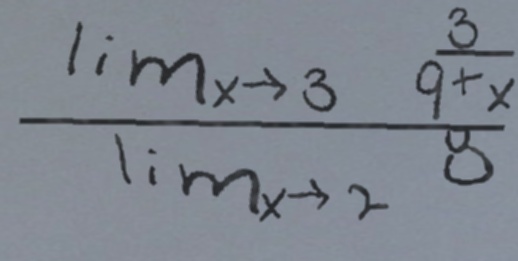 lim x→3 3
9+x
lim x→2 8